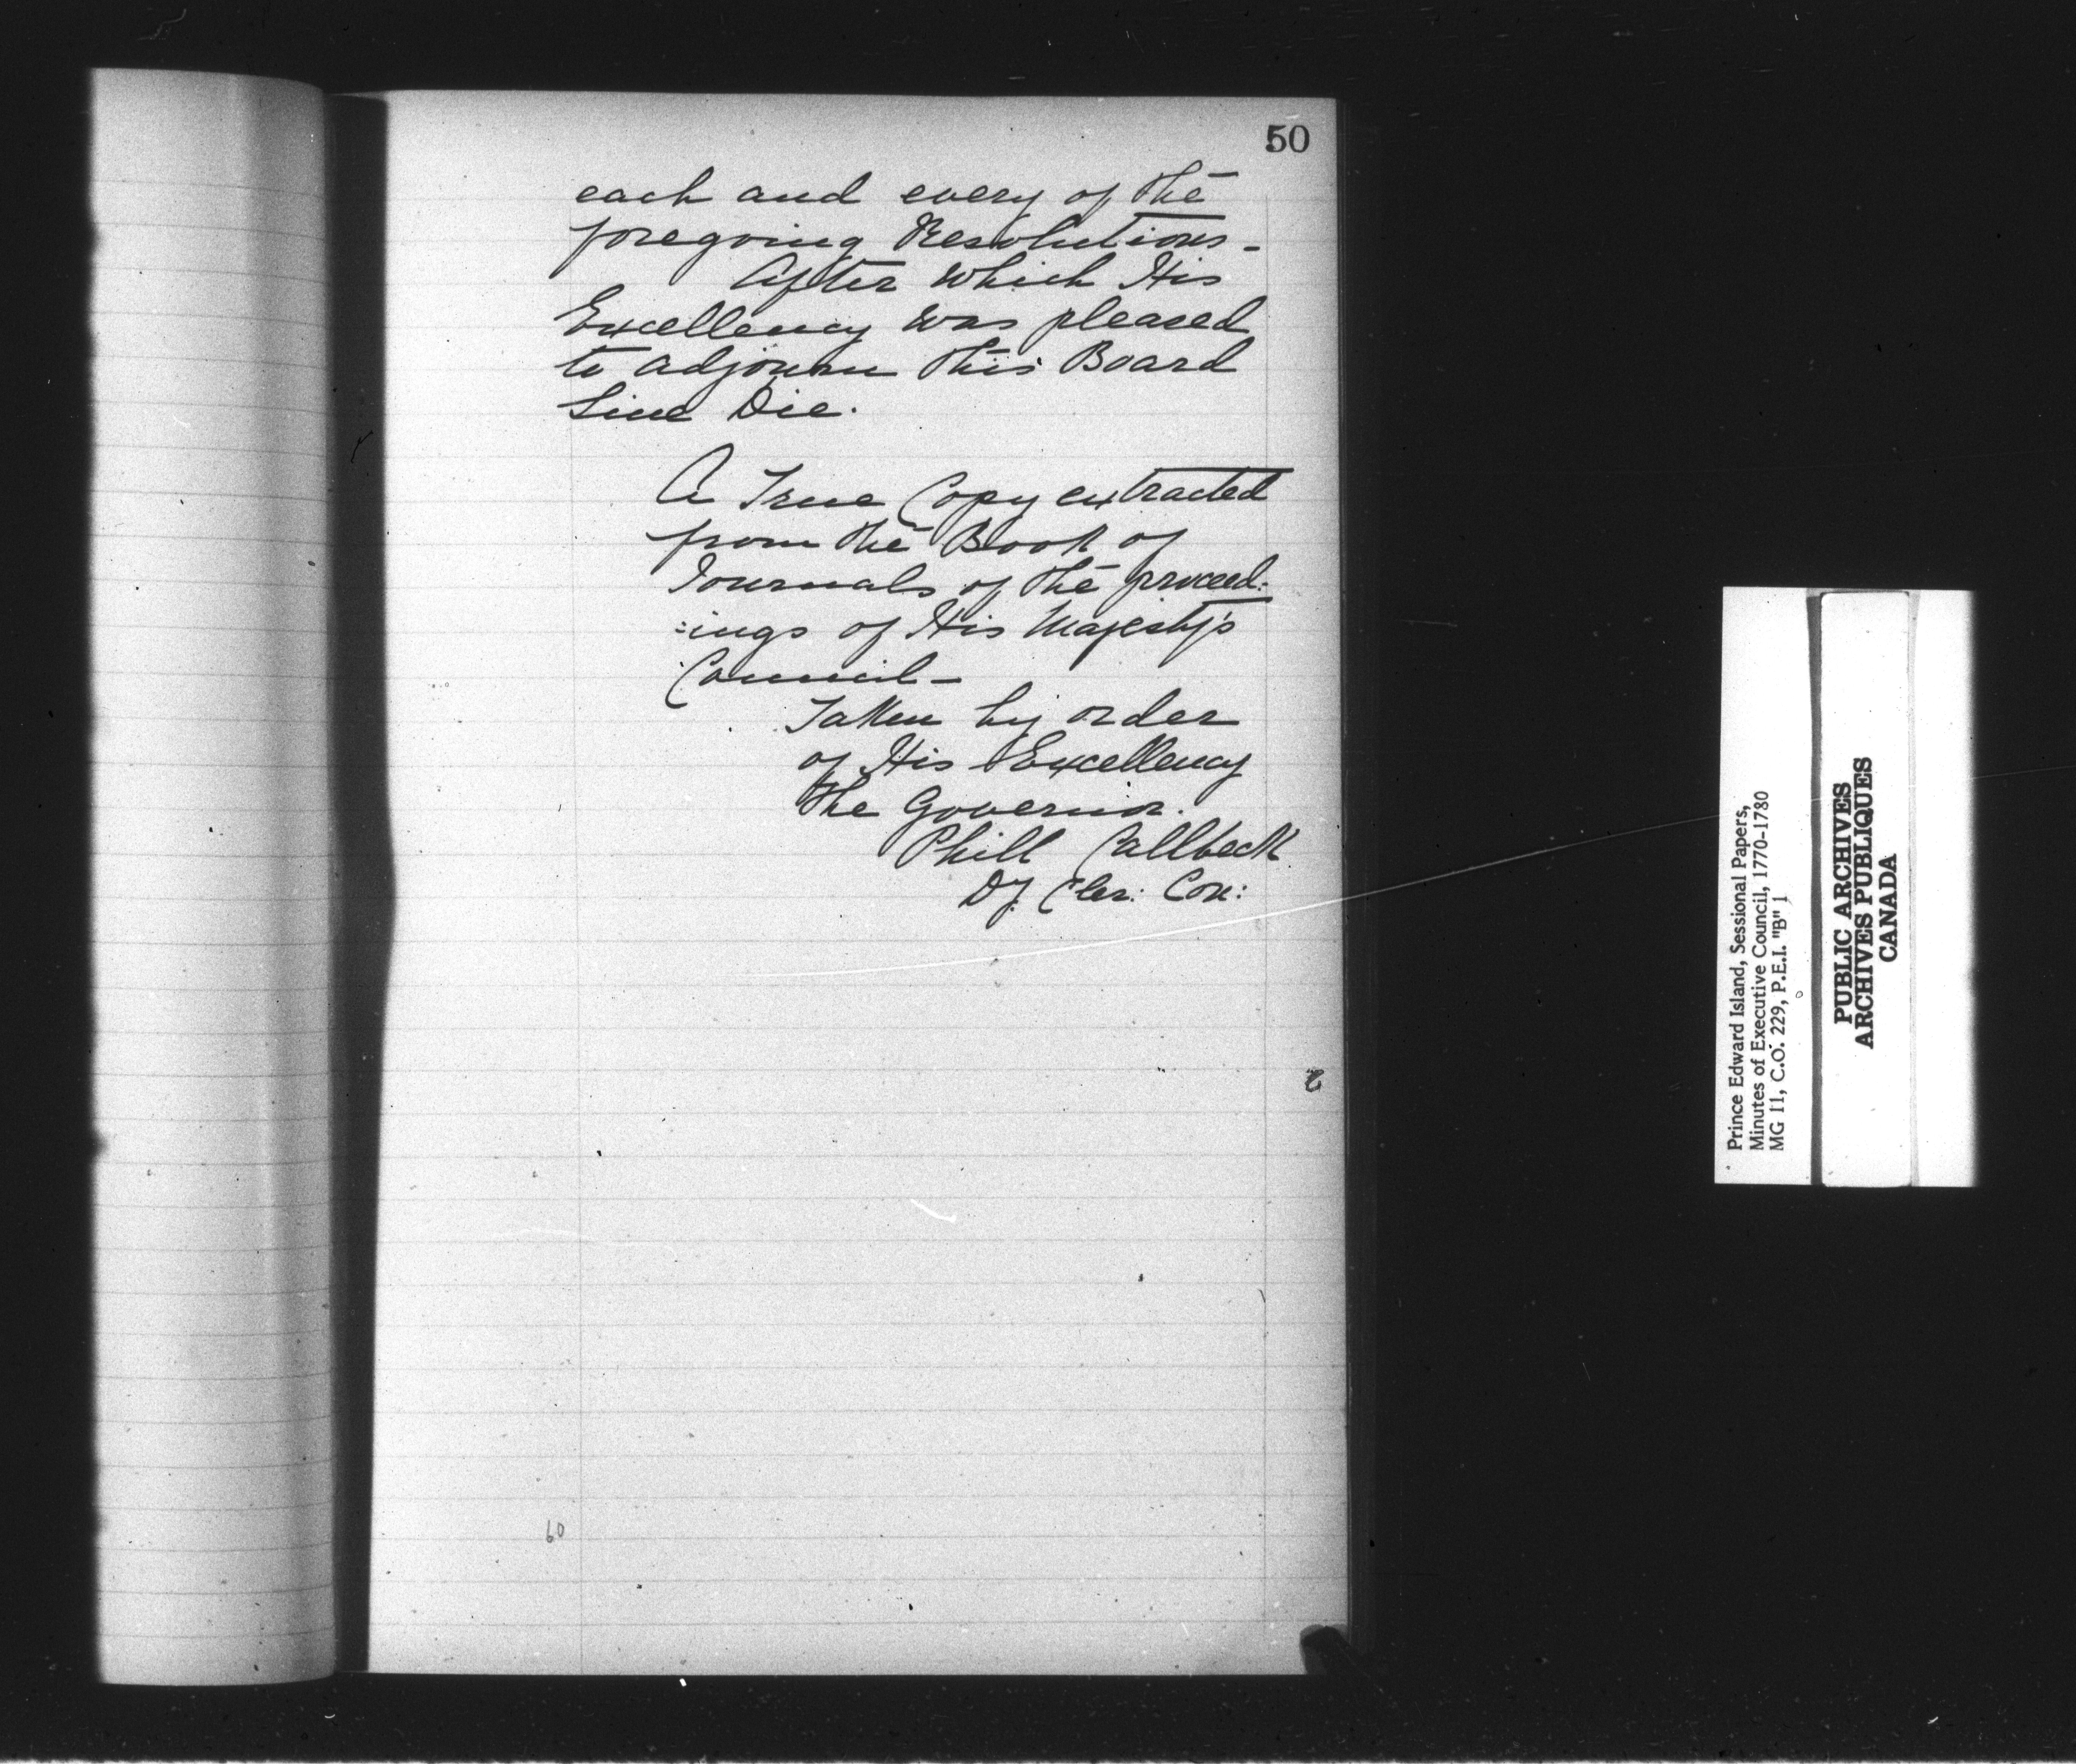 50
each and every of the
foregoing Resolutions -
After which His
Excellency was pleased
to adjourn this Board
Sine Die.
A True Copy extracted
from the Book of
Journals of the proceed:
:ings of His Majesty's
Council -
Taken by order
of His Excellency
the Governor.
Phill Callbeck
Dy. Cler: Con:
60
Prince Edward Island, Sessional Papers,
Minutes of Executive Council, 1770-1780
MG 11, C.O. 229, P.E.I. "B" 1
PUBLIC ARCHIVES
ARCHIVES PUBLIQUES
CANADA